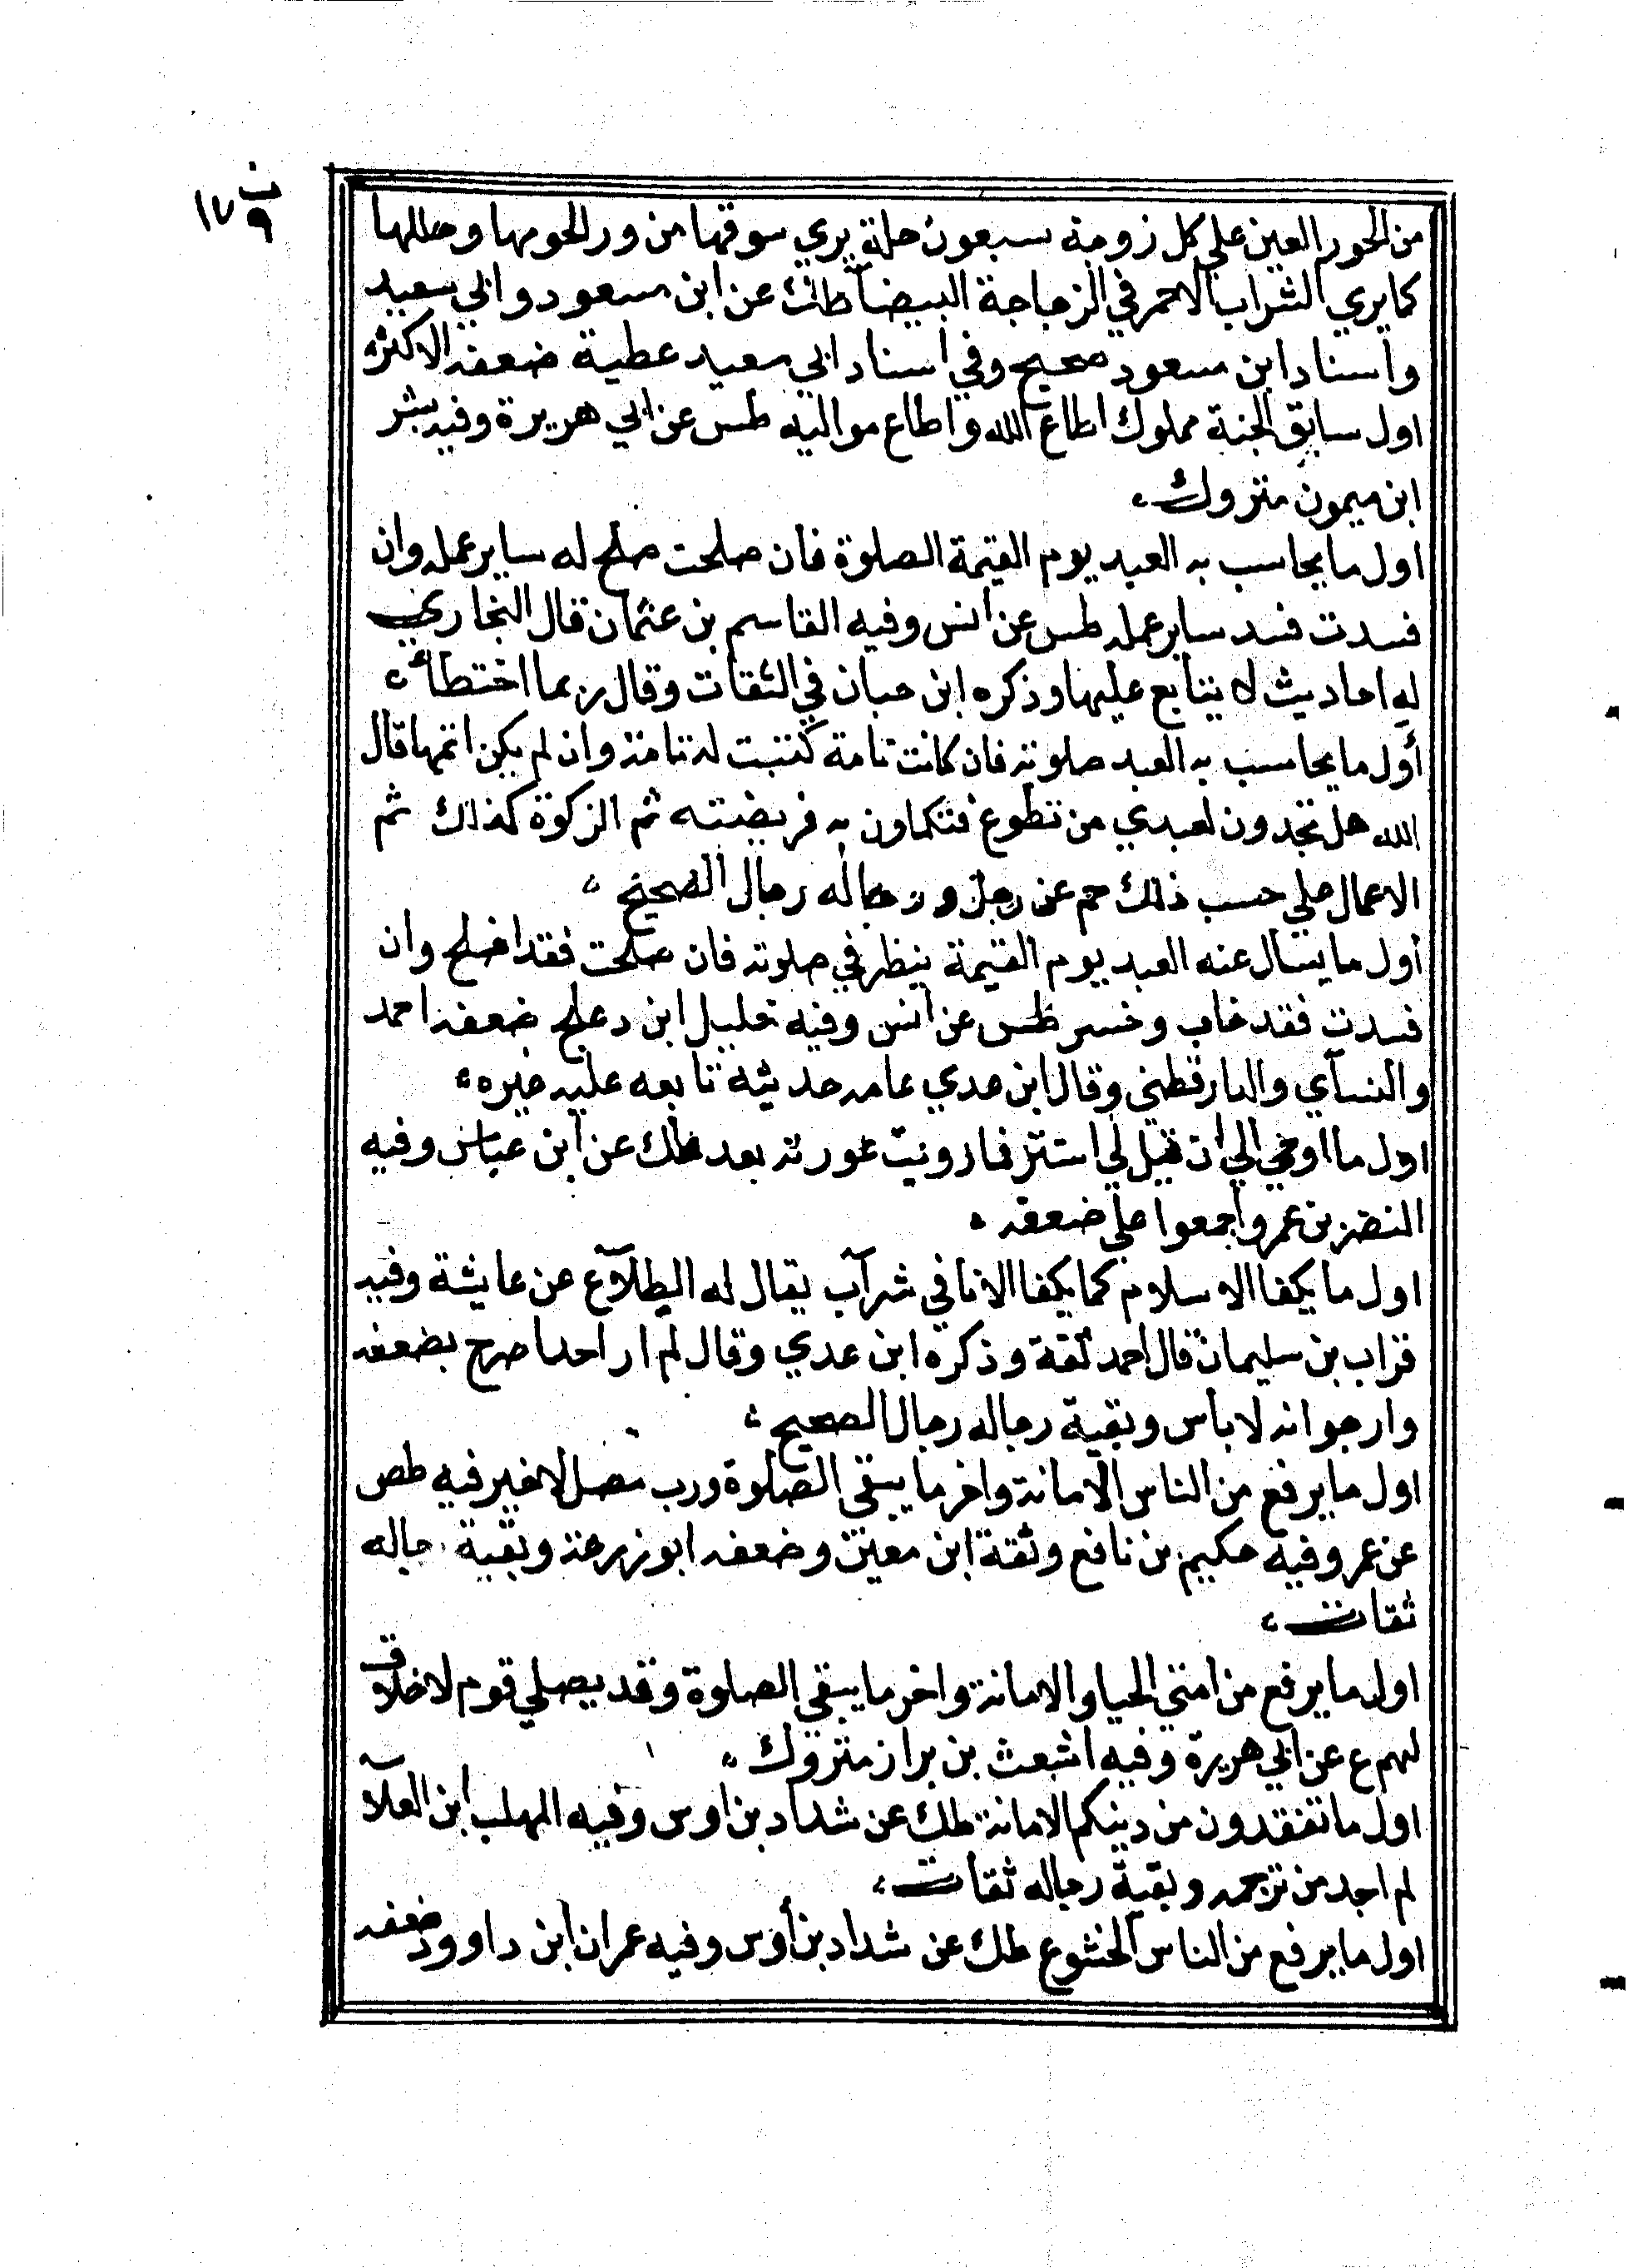 ف ١٧
٩
من الحور العين علي كل زوجة سبعون حلة يري سوقها من ور لحومها وحللها
كما يري الشراب الاحمر في الزجاجة البيضآ طك عن ابن مسعود وابي سعيد
واسناد ابن مسعود صحيح وفي اسناد ابي سعيد عطية ضعفه الاكثر
اول سابق الجنة مملوك اطاع الله واطاع مواليه طس عن ابي هريرة وفيه بشر
ابن ميمون متروك
اول ما يحاسب به العبد يوم القيمة الصلوة فان صلحت صلح له ساير عمله وان
فسدت فسد ساير عمله طس عن انس وفيه القاسم بن عثمان قال البخاري
له احاديث لا يتابع عليها وذكره ابن حبان في الثقات وقال ربما اختطأ
أول ما يحاسب به العبد صلوته فان كانت تامة كتبت له تامة وان لم يكن اتمها قال
الله هل تجدون لعبدي من تطوع فتكملون به فريضته ثم الزكوة كذلك ثم
الاعمال علي حسب ذلك حم عن رجل ورجاله رجال الصحيح
أول ما يسال عنه العبد يوم القيمة ينظر في صلوته فان صلحت فقد افلح وان
فسدت فقد خاب وخسر طس عن انس وفيه خليل ابن دعلج ضعفه احمد
والنسآي والدارقطني وقال ابن عدي عامه حديثه تابعه عليه غيره
اول ما اوحي الي ان قيل لي استتر فما رونيت عورته بعد طك عن ابن عباس وفيه
النضر بن عمر واجمعوا علي ضعفه
اول ما يكفا الاسلام كما يكفا الانا في شرآب يقال له الطلآ ع عن عايشة وفيه
فراب بن سليمان قال احمد ثقة وذكره ابن عدي وقال لم ار احدا صرح بضعفه
وارجو انه لا بأس وبقية رجاله رجال الصحيح
اول ما يرفع من الناس الامانة واخر ما يبقي الصلوة ورب مصل لا خير فيه طص
عن عمر وفيه حكيم بن نافع وثقه ابن معين وضعفه ابو زرعة وبقية رجاله
ثقات
اول ما يرفع من امتي الحيا والامانة واخر ما يبقي الصلوة وقد يصلي قوم لا خلاق
لهم ع عن ابي هريرة وفيه اشعث بن براز متروك
اول ما تفقدون من دينكم الامانة طك عن شداد بن اوس وفيه المهلب ابن العلآ
لم اجد من ترجمه وبقية رجاله ثقات
اول ما يرفع من الناس الخشوع طك عن شداد بن أوس وفيه عمران ابن داوود ضعفه